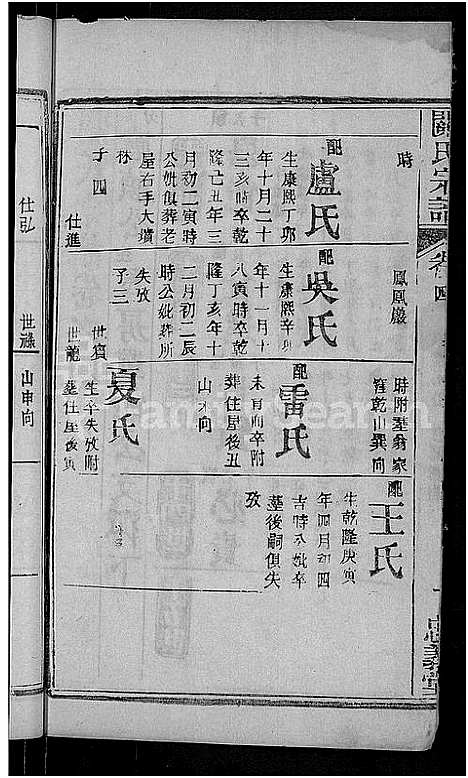 氏宗譜
卷四
時
配盧氏
生康熙丁卯
年十月二十
三亥時卒乾
隆己亥年三
月初二寅時
公妣俱葬老
屋右手大墳
林
子四
仕進
鳳凰嚴
配吳氏
生康熙辛卯
年十一月十
八寅時卒乾
隆丁亥年十
二月初二辰
時公妣葬所
失攷
子三
世賓
世龍
時附塟翁冢
乾山巽向
配雷氏
未有而卒附
葬住屋後丑
山未向
夏氏
生卒失攷附
塟住屋後寅
配王氏
生乾隆庚寅
年四月初四
吉時公妣卒
塟後嗣俱失
攷
仕弘
世祿
山申向
忠義堂